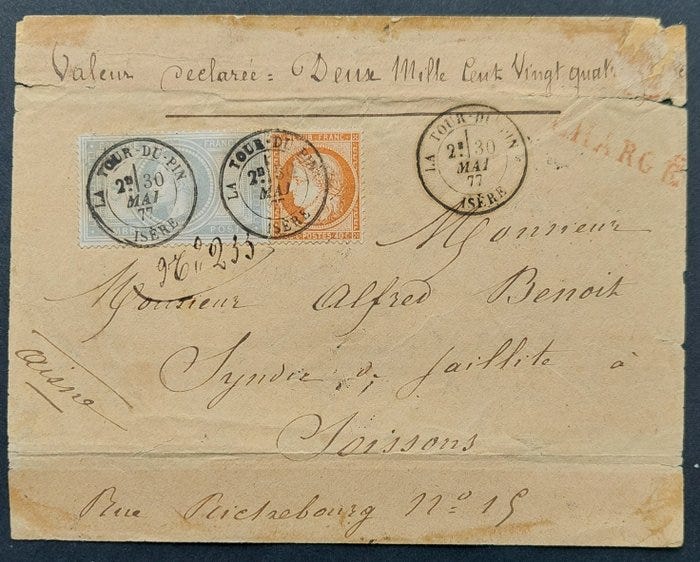 Valeur Declarée = Deux Mille Cent Vingt quat
CHARGÉ
LA TOUR-DU-PIN
2E 30
MAI
77
ISÈRE
LA TOUR-DU-PIN
2E 30
MAI
77
ISÈRE
FRANC
POSTES 40 C
LA TOUR-DU-PIN
2E 30
MAI
77
ISÈRE
No 255
Monsieur
Monsieur Alfred Benoit
Aisne
Syndic de faillite à
Soissons
Rue Richebourg No 15